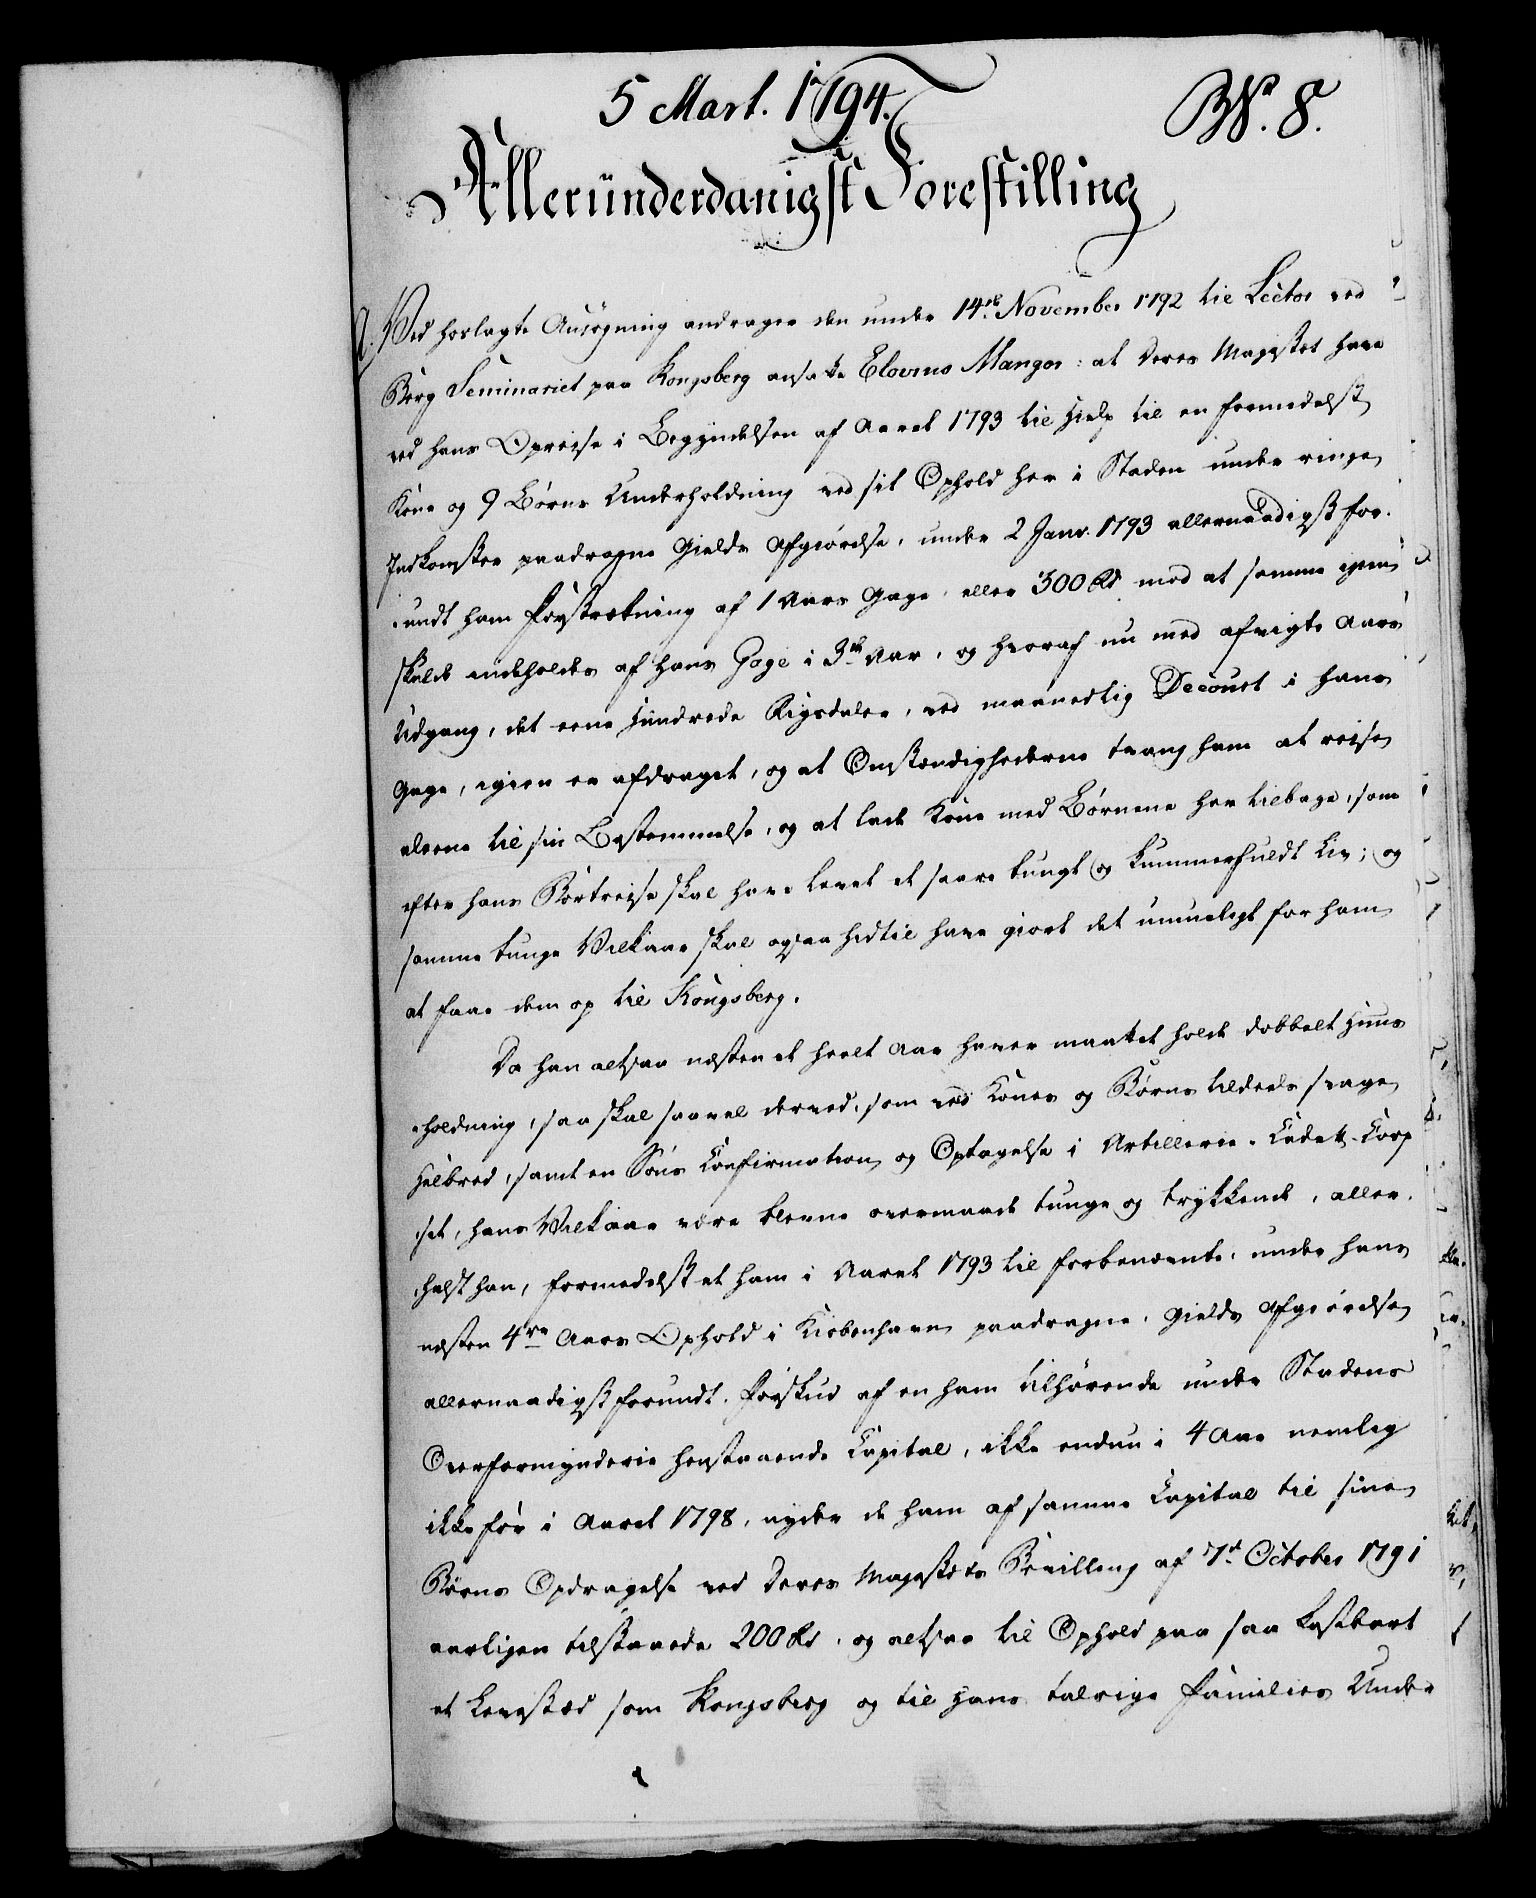 5 Mart. 1794.
No. 8.
Alleründerdanigst Forestilling
Ved hoslagte Ansøgning andrager den under 14de November 1792 til Lector ved
Berg Seminariet paa Kongsberg ansatte Elovius Mangor: at Deres Majestet have
ved hans Opreise i Begyndelsen af Aaret 1793 til Hielp til en formedelst
Kone og 9 Børns Underholdning ved sit Ophold her i Staden under ringe
Indkomster paadragne Gields Afgiørelse, under 2 Janv. 1793 allernaadigst for-
undt ham Forstrækning af 1 Aars Gage, eller 300 Rd mod at samme igien
skulde indeholdes af hans Gage i 3de Aar, og hvoraf nu med afvigte Aars
Udgang, det eene Hundrede Rigsdaler, ved maanedlig Decourt i hans
Gage, igien er afdraget, og at Omstændighederne tvang ham at reise
aleene til sin Bestemmelse, og at lade Kone med Børnene her tilbage, som
efter hans Bortreise skal have levet et saare tungt og kummerfuldt Liv; og
samme tunge Vilkaar skal ogsaa hidtil have giort det umueligt for ham
at faae dem op til Kongsberg.
Da han altsaa næsten et heelt Aar haver maattet holde dobbelt Huus
holdning, saa skal saavel derved, som ved Kones og Børns tildeels svage
Helbred, samt en Søns Confirmation og Optagelse i Artillerie-Cadet-Corp
set, hans Vilkaar være blevne overmaade tunge og trykkende, aller-
helst han, formedelst et ham i Aaret 1793 til forbenævnte, under hans
næsten 4re Aars Ophold i Kiøbenhavn paadragne, Gields Afgiørelse
allernaadigst forundt, Forskud af en ham tilhørende under Stadens
Overformynderie henstaaende Capital, ikke endnu i 4 Aar nemlig
ikke før i Aaret 1798, nyder de ham af samme Capital til sine
Børns Opdragelse ved Deres Majestæts Bevilling af 7de October 1791
aarligen tilstaaede 200 Rd, og altsaa til Ophold paa saa kostbart
et Levested som Kongsberg og til hans talrige Families Under